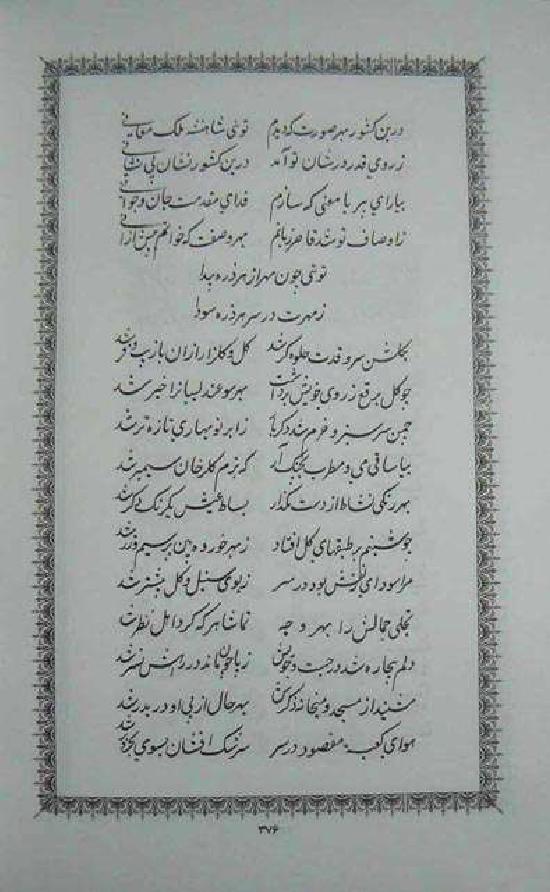 درین کشور بهر صورت که دیدم توئی شاهنشه ملک معانی
ز روی قدر در شان تو آمد درین کشور نشان بی نشانی
بیارای پر یا مونی که سازم فدای مقدمت جان و جوانی
ز اوصاف تو شد قاصر زبانم بهر وصفت که خوانم بیش از آنی
توئی چون مهر از هر ذره پیدا
ز مهرت در سر هر ذره سودا
بگلشن سرو قدت جلوه گر شد گل و گلزار ازان با زیب و فر شد
چو گل برقع ز روی خویش برداشت بهر سو عندلیبانرا خبر شد
چمن سرسبز و خرم شد دگر بار ز ابر نوبهاری تازه تر شد
بیا ساقی می و مطرب بچنگ آر که بزم گلرخان سیمبر شد
بهر رنگی نشاط از دست مگذار بساط عیش یکرنگ دگر شد
چو شبنم بر طبقهای گل افتاد ز مهر خور دهن پر سیم و زر شد
مرا سودای زلفش بود در سر ز بوی سنبل و گل بیشتر شد
تجلی جمالش را بهر وجه تماشا هر که کرد اهل نظر شد
دلم بیچاره شد در جست و جویش زبانم
شنید از مسجد و میخانه ذکرش بهر حال از پی او در بدر شد
هوای کعبه مقصود در سر سرشک افشان بسوی شد
۳۷۶